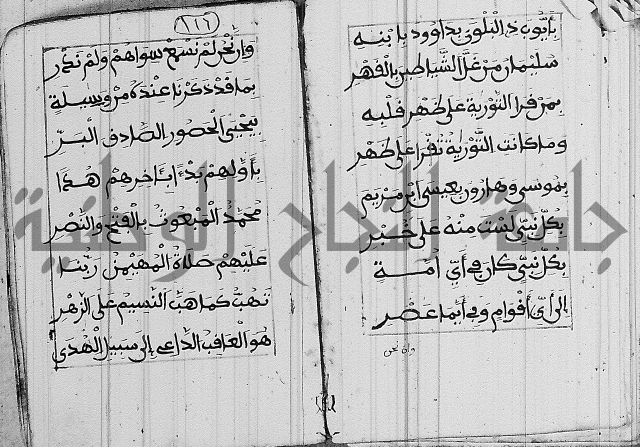 بأيوب ذ البلوى بداوود بابنه
سليمان من غل الشياطين بالقهر
بمن قرا التورية على ظهر قلبه
وما كانت التورية تقرا على ظهر
بموسى وهارون بعيسى ابن مريم
بكل نبي لست منه على خبر
بكل نبي كان في أي أمة
إلى أي أقوام وفي أيما عصر
وان نحن
وإن نحن لم نسمع سواهم ولم ندر
بما قد ذكرنا عنده من وسيلة
بيحيى الحصور الصادق البر
بأولهم بدءا بآخرهم هذا
محمد المبعوث بالفتح والنصر
عليهم صلاة المهيمن ربنا
تهب كما هب النسيم على الزهر
هو العاقب الداعي إلى سبيل الهدى
جامعة النجاح الوطنية